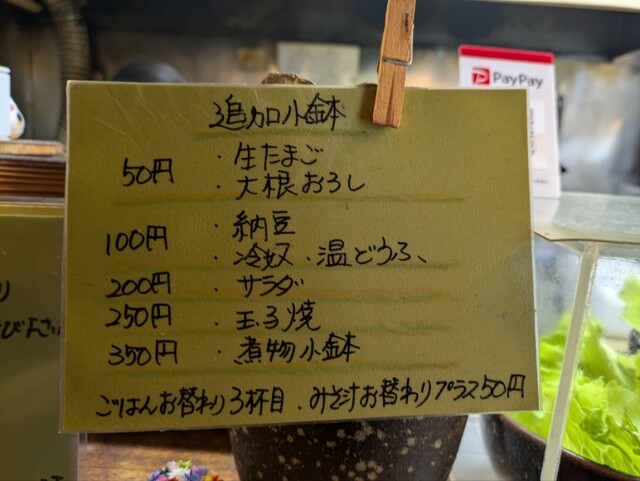 追加小鉢
50円
・生たまご
・大根おろし
100円
・納豆
・冷奴、温どうふ、
200円 ・サラダ
250円 ・玉子焼
350円 ・煮物小鉢
ごはんお替わり3杯目、みそ汁お替わりプラス50円
PayPay